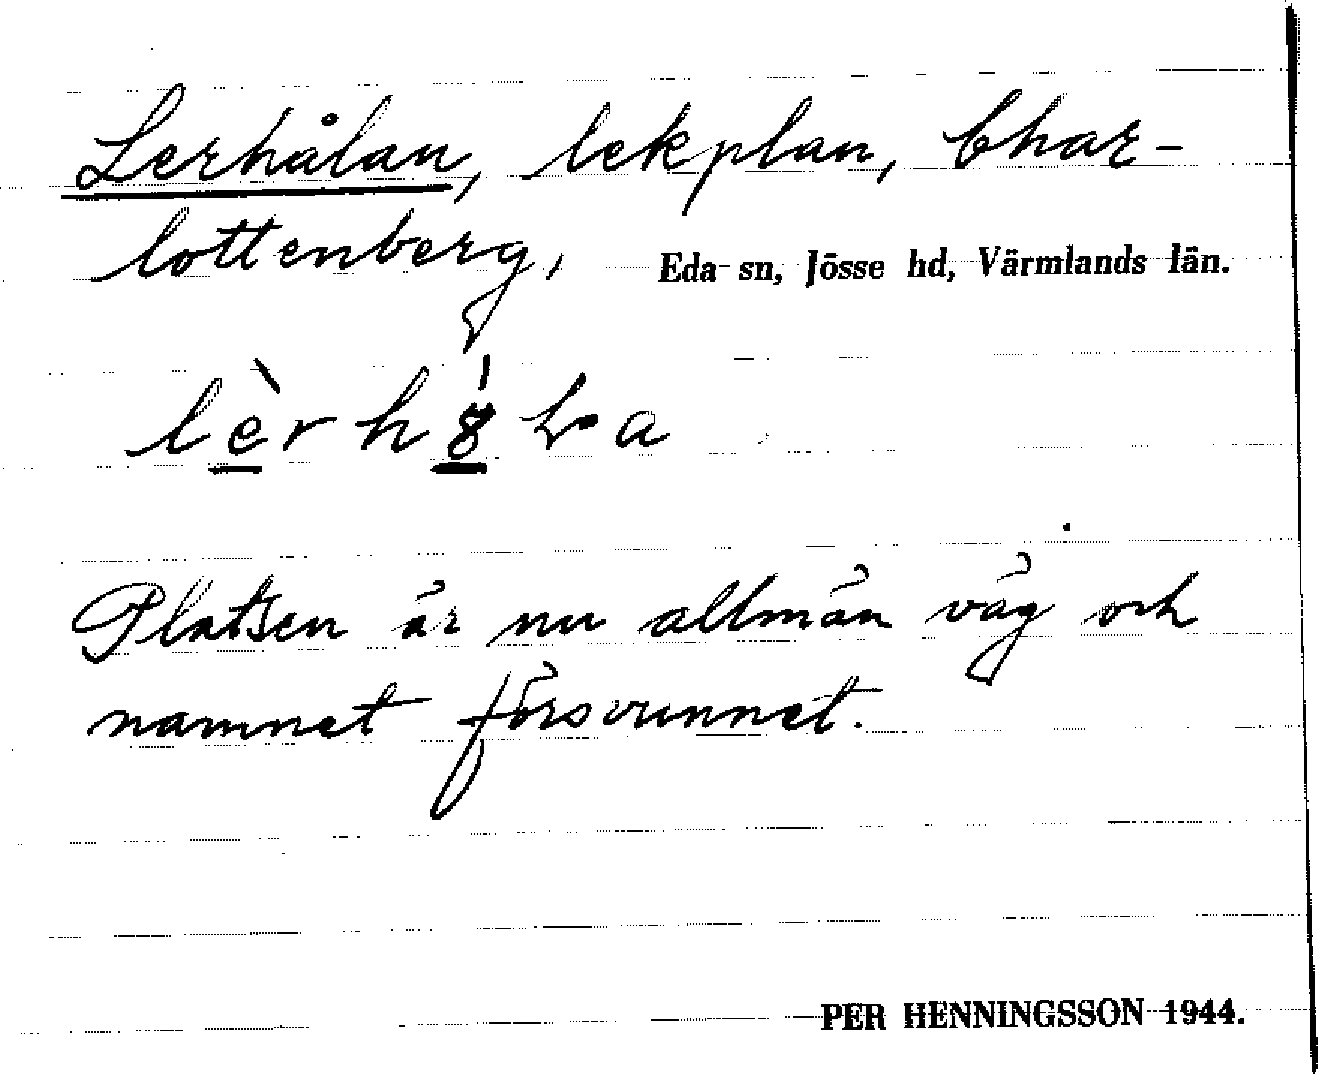 Lerhålan, lekplan, Char-
lottenberg, Eda sn, Jösse hd, Värmlands län.
lèrh8̍ɫa
Platsen är nu allmän väg och
namnet försvunnet.
PER HENNINGSSON 1944.